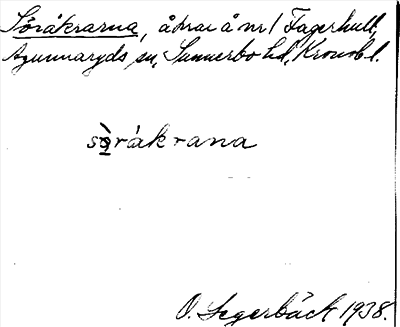 Söråkrarna, åkrar å nr 1 Fagerhult,
Agunnaryds sn, Sunnerbo hd, Kronob l.
sö̀råkrana
O. Segerbäck 1938.